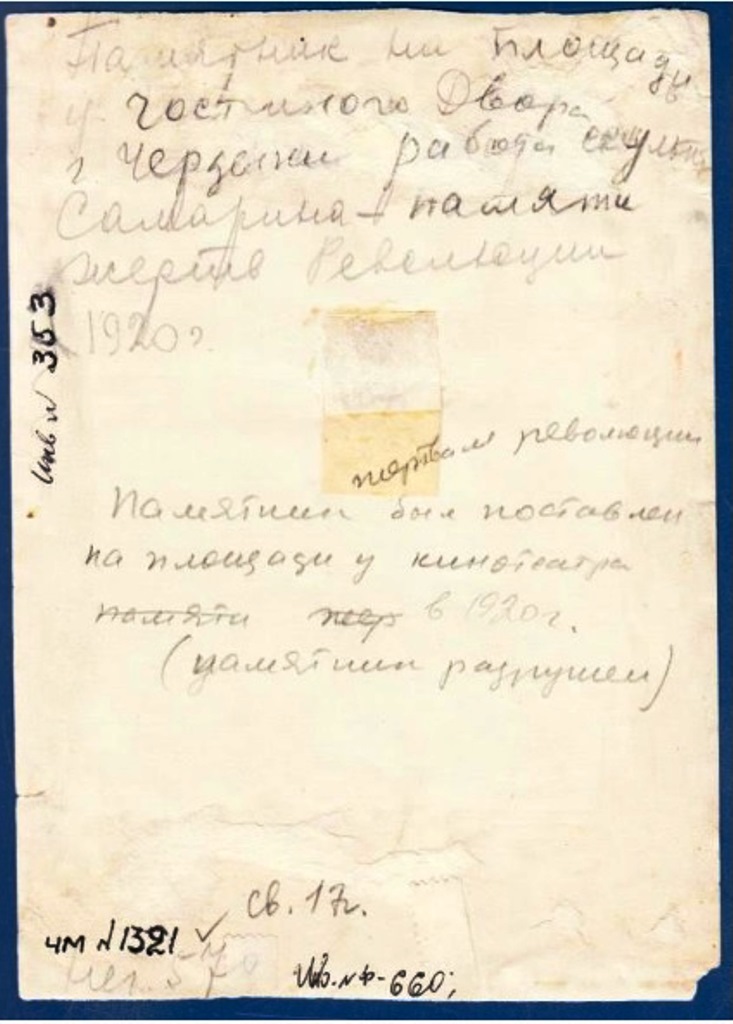 Памятник на площади
у гостиного Двора
г Чердыни работа скульп
Самарина – памяти
жертв Революции
1920 г.
Инв № 353
жертвам революции
Памятник был поставлен
на площади у кинотеатра
памяти жер в 1920 г.
(памятник разрушен)
св. 17г.
ЧМ № 1321 ✓
нег. 570
Ив. № Ф-660;